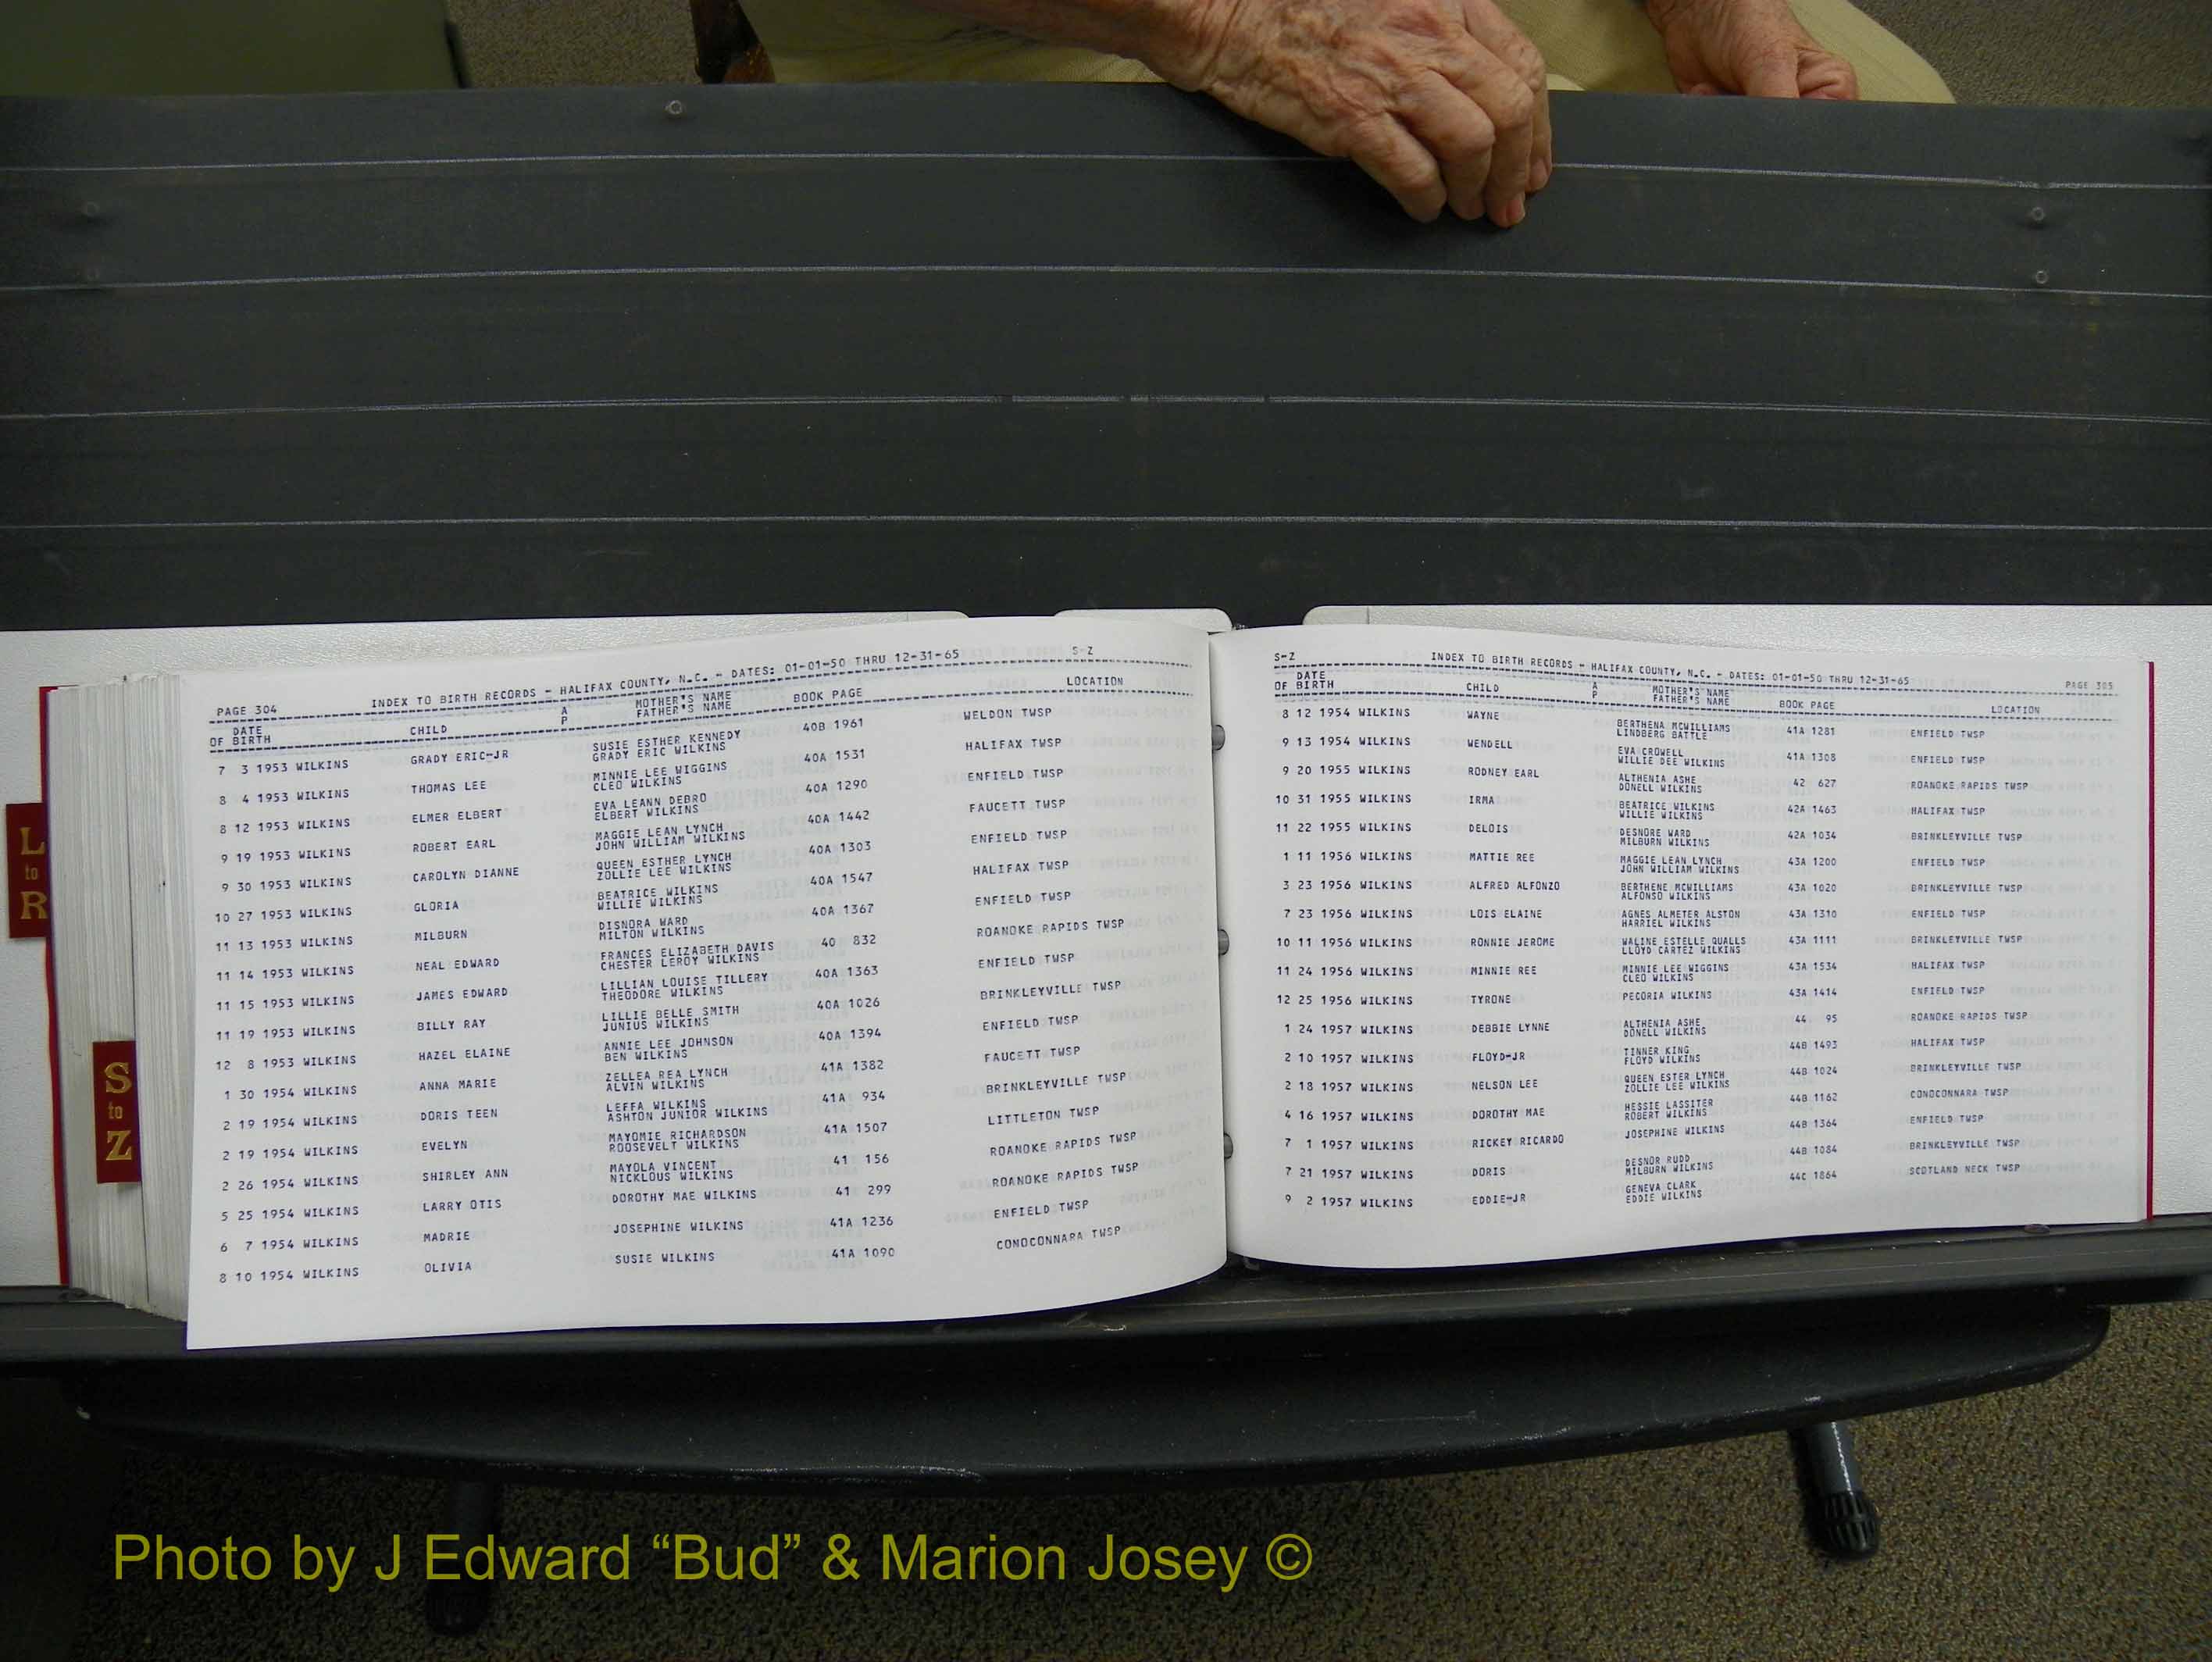 L
to
R
S
to
Z
PAGE 304 INDEX TO BIRTH RECORDS - HALIFAX COUNTY, N.C. - DATES: 01-01-50 THRU 12-31-65 S-Z
DATE OF BIRTH CHILD A P MOTHER'S NAME FATHER'S NAME BOOK PAGE LOCATION
7 3 1953 WILKINS GRADY ERIC-JR SUSIE ESTHER KENNEDY GRADY ERIC WILKINS 40B 1961 WELDON TWSP
8 4 1953 WILKINS THOMAS LEE MINNIE LEE WIGGINS CLEO WILKINS 40A 1531 HALIFAX TWSP
8 12 1953 WILKINS ELMER ELBERT EVA LEANN DEBRO ELBERT WILKINS 40A 1290 ENFIELD TWSP
9 19 1953 WILKINS ROBERT EARL MAGGIE LEAN LYNCH JOHN WILLIAM WILKINS 40A 1442 FAUCETT TWSP
9 30 1953 WILKINS CAROLYN DIANNE QUEEN ESTHER LYNCH ZOLLIE LEE WILKINS 40A 1303 ENFIELD TWSP
10 27 1953 WILKINS GLORIA BEATRICE WILKINS WILLIE WILKINS 40A 1547 HALIFAX TWSP
11 13 1953 WILKINS MILBURN DISNORA WARD MILTON WILKINS 40A 1367 ENFIELD TWSP
11 14 1953 WILKINS NEAL EDWARD FRANCES ELIZABETH DAVIS CHESTER LEROY WILKINS 40 832 ROANOKE RAPIDS TWSP
11 15 1953 WILKINS JAMES EDWARD LILLIAN LOUISE TILLERY THEODORE WILKINS 40A 1363 ENFIELD TWSP
11 19 1953 WILKINS BILLY RAY LILLIE BELLE SMITH JUNIUS WILKINS 40A 1026 BRINKLEYVILLE TWSP
12 8 1953 WILKINS HAZEL ELAINE ANNIE LEE JOHNSON BEN WILKINS 40A 1394 ENFIELD TWSP
1 30 1954 WILKINS ANNA MARIE ZELLEA REA LYNCH ALVIN WILKINS 41A 1382 FAUCETT TWSP
2 19 1954 WILKINS DORIS TEEN LEFFA WILKINS ASHTON JUNIOR WILKINS 41A 934 BRINKLEYVILLE TWSP
2 19 1954 WILKINS EVELYN MAYOMIE RICHARDSON ROOSEVELT WILKINS 41A 1507 LITTLETON TWSP
2 26 1954 WILKINS SHIRLEY ANN MAYOLA VINCENT NICKLOUS WILKINS 41 156 ROANOKE RAPIDS TWSP
5 25 1954 WILKINS LARRY OTIS DOROTHY MAE WILKINS 41 299 ROANOKE RAPIDS TWSP
6 7 1954 WILKINS MADRIE JOSEPHINE WILKINS 41A 1236 ENFIELD TWSP
8 10 1954 WILKINS OLIVIA SUSIE WILKINS 41A 1090 CONOCONNARA TWSP
S-Z INDEX TO BIRTH RECORDS - HALIFAX COUNTY, N.C. - DATES: 01-01-50 THRU 12-31-65 PAGE 305
DATE OF BIRTH CHILD A P MOTHER'S NAME FATHER'S NAME BOOK PAGE LOCATION
8 12 1954 WILKINS WAYNE BERTHENA MCWILLIAMS LINDBERG BATTLE 41A 1281 ENFIELD TWSP
9 13 1954 WILKINS WENDELL EVA CROWELL WILLIE DEE WILKINS 41A 1308 ENFIELD TWSP
9 20 1955 WILKINS RODNEY EARL ALTHENIA ASHE DONELL WILKINS 42 627 ROANOKE RAPIDS TWSP
10 31 1955 WILKINS IRMA BEATRICE WILKINS WILLIE WILKINS 42A 1463 HALIFAX TWSP
11 22 1955 WILKINS DELOIS DESNORE WARD MILBURN WILKINS 42A 1034 BRINKLEYVILLE TWSP
1 11 1956 WILKINS MATTIE REE MAGGIE LEAN LYNCH JOHN WILLIAM WILKINS 43A 1200 ENFIELD TWSP
3 23 1956 WILKINS ALFRED ALFONZO BERTHENE MCWILLIAMS ALFONSO WILKINS 43A 1020 BRINKLEYVILLE TWSP
7 23 1956 WILKINS LOIS ELAINE AGNES ALMETER ALSTON HARRIEL WILKINS 43A 1310 ENFIELD TWSP
10 11 1956 WILKINS RONNIE JEROME WALINE ESTELLE QUALLS LLOYD CARTEZ WILKINS 43A 1111 BRINKLEYVILLE TWSP
11 24 1956 WILKINS MINNIE REE MINNIE LEE WIGGINS CLEO WILKINS 43A 1534 HALIFAX TWSP
12 25 1956 WILKINS TYRONE PECORIA WILKINS 43A 1414 ENFIELD TWSP
1 24 1957 WILKINS DEBBIE LYNNE ALTHENIA ASHE DONELL WILKINS 44 95 ROANOKE RAPIDS TWSP
2 10 1957 WILKINS FLOYD-JR TINNER KING FLOYD WILKINS 44B 1493 HALIFAX TWSP
2 18 1957 WILKINS NELSON LEE QUEEN ESTER LYNCH ZOLLIE LEE WILKINS 44B 1024 BRINKLEYVILLE TWSP
4 16 1957 WILKINS DOROTHY MAE HESSIE LASSITER ROBERT WILKINS 44B 1162 CONOCONNARA TWSP
7 1 1957 WILKINS RICKEY RICARDO JOSEPHINE WILKINS 44B 1364 ENFIELD TWSP
7 21 1957 WILKINS DORIS DESNOR RUDD MILBURN WILKINS 44B 1084 BRINKLEYVILLE TWSP
9 2 1957 WILKINS EDDIE-JR GENEVA CLARK EDDIE WILKINS 44C 1864 SCOTLAND NECK TWSP
Photo by J Edward “Bud” & Marion Josey ©